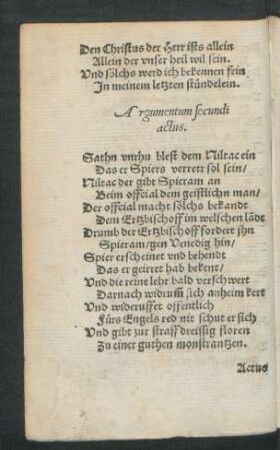 Den Christus der Herr ists allein
Allein der vnser heil wil sein.
Vnd sölchs werd ich bekennen fein
In meinem letzten stündelein.
Argumentum secundi
actus.
Sathn vnrhu blest dem Niltac ein
Das er Spiers verretr sol sein/
Niltac der gibt Spieram an
Beim offcial dem geistlichn man/
Der offcial macht sölchs bekandt
Dem Ertzbischoff im welschen lādt
Drumb der Ertzbischoff fordert jhn
Spieram/gen Venedig hin/
Spier erscheinet vnd behendt
Das er geirret hab bekent/
Vnd die reine lehr bald verschwert
Darnach widrum̄ sich anheim kert
Vnd widerufft offentlich
Fürs Engels red nit schut er sich
Vnd gibt zur straff dreissig floren
Zu einer guthen monstrantzen.
Actus